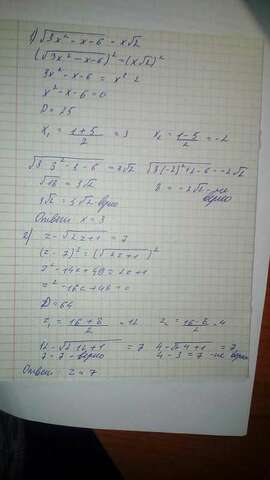 1) √3x² - x - 6 = x√2
(√3x² - x - 6)² = (x√2)²
3x² - x - 6 = x² 2
x² - x - 6 = 0
D = 25
x₁ = 1+5/2 = 3 x₂ = 1-5/2 = -2
√18 = 3√2 8 = -2√2 - не верно
3√2 = 3√2 - верно
Ответ: x = 3
2) z - √2z+1 = 7
(z - 7)² = (√2z+1)²
z² - 14z + 49 = 2z + 1
z² - 16z + 48 = 0
D = 64
z₁ = 16+8/2 = 12 z₂ = 16-8/2 = 4
12 - √2·12+1 = 7 4 - √2·4+1 = 7
7 = 7 - верно 4 - 3 = 7 - не верно
Ответ: z = 7